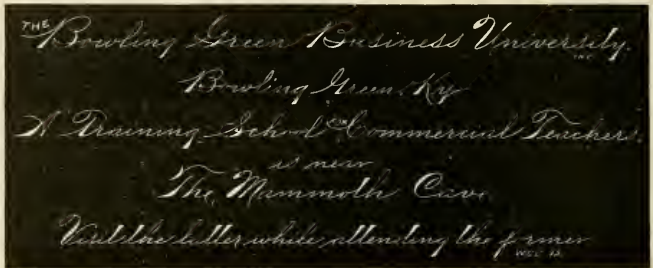 THE Bowling Green Business University. INC.
Bowling Green, Ky
A Training School FOR Commercial Teachers.
is near
The Mammoth Cave.
Visit the latter while attending the former